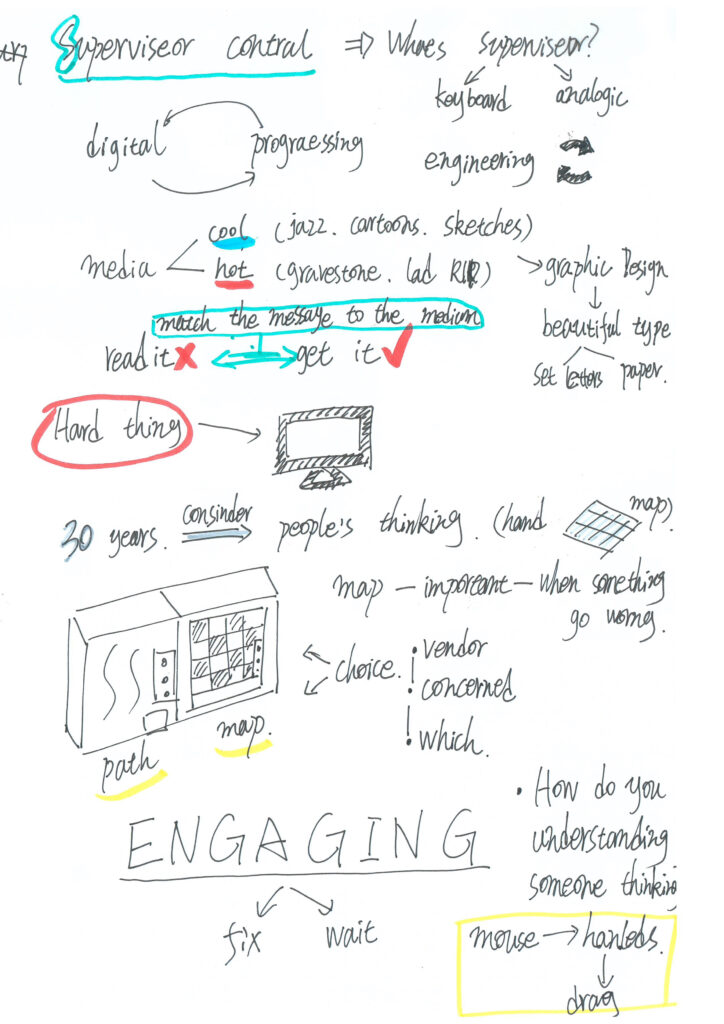 Superviseor contral => Whoes superviseor?
keyboard analogic
digital prograessing
engineering
media cool (jazz. cartoons. sketches)
hot (gravestone. lad
graphic Design
match the message to the medium
beautiful type
read it get it
set letters paper.
Hard thing
30 years. consinder people's thinking. (hand map).
map — important — when something
go worng.
choice. vendor
concerned
which.
path map.
ENGAGING
fix wait
• How do you
understanding
someone thinking
mouse → hanleds.
drag